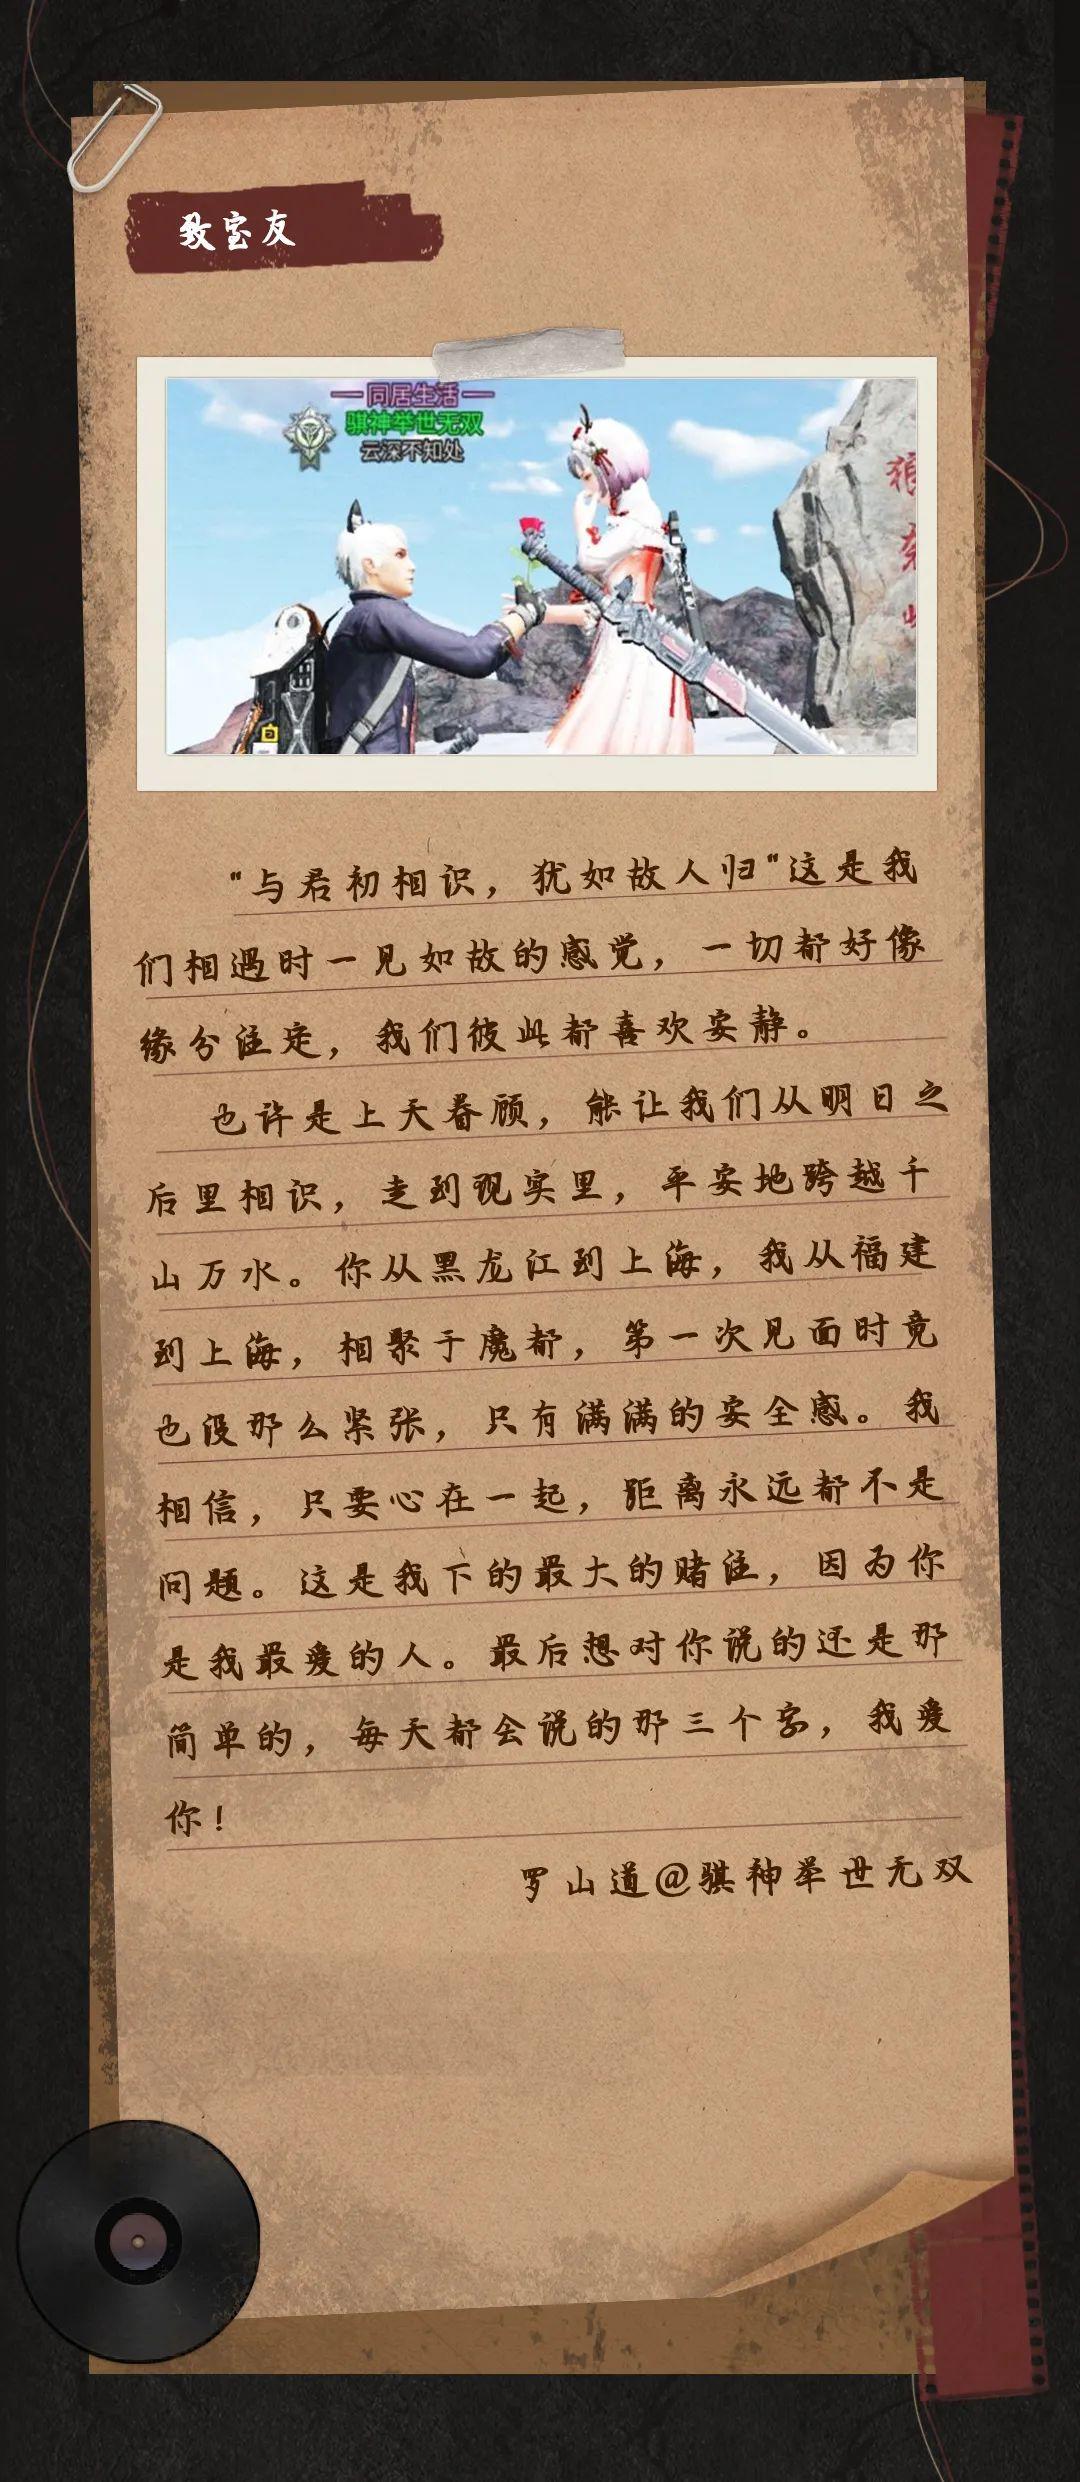 致宝友
同居生活
骐神举世无双
云深不知处
"与君初相识，犹如故人归"这是我
们相遇时一见如故的感觉，一切都好像
缘分注定，我们彼此都喜欢安静。
也许是上天眷顾，能让我们从明日之
后里相识，走到现实里，平安地跨越千
山万水。你从黑龙江到上海，我从福建
到上海，相聚于魔都，第一次见面时竟
也没那么紧张，只有满满的安全感。我
相信，只要心在一起，距离永远都不是
问题。这是我下的最大的赌注，因为你
是我最爱的人。最后想对你说的还是那
简单的，每天都会说的那三个字，我爱
你！
罗山道@骐神举世无双